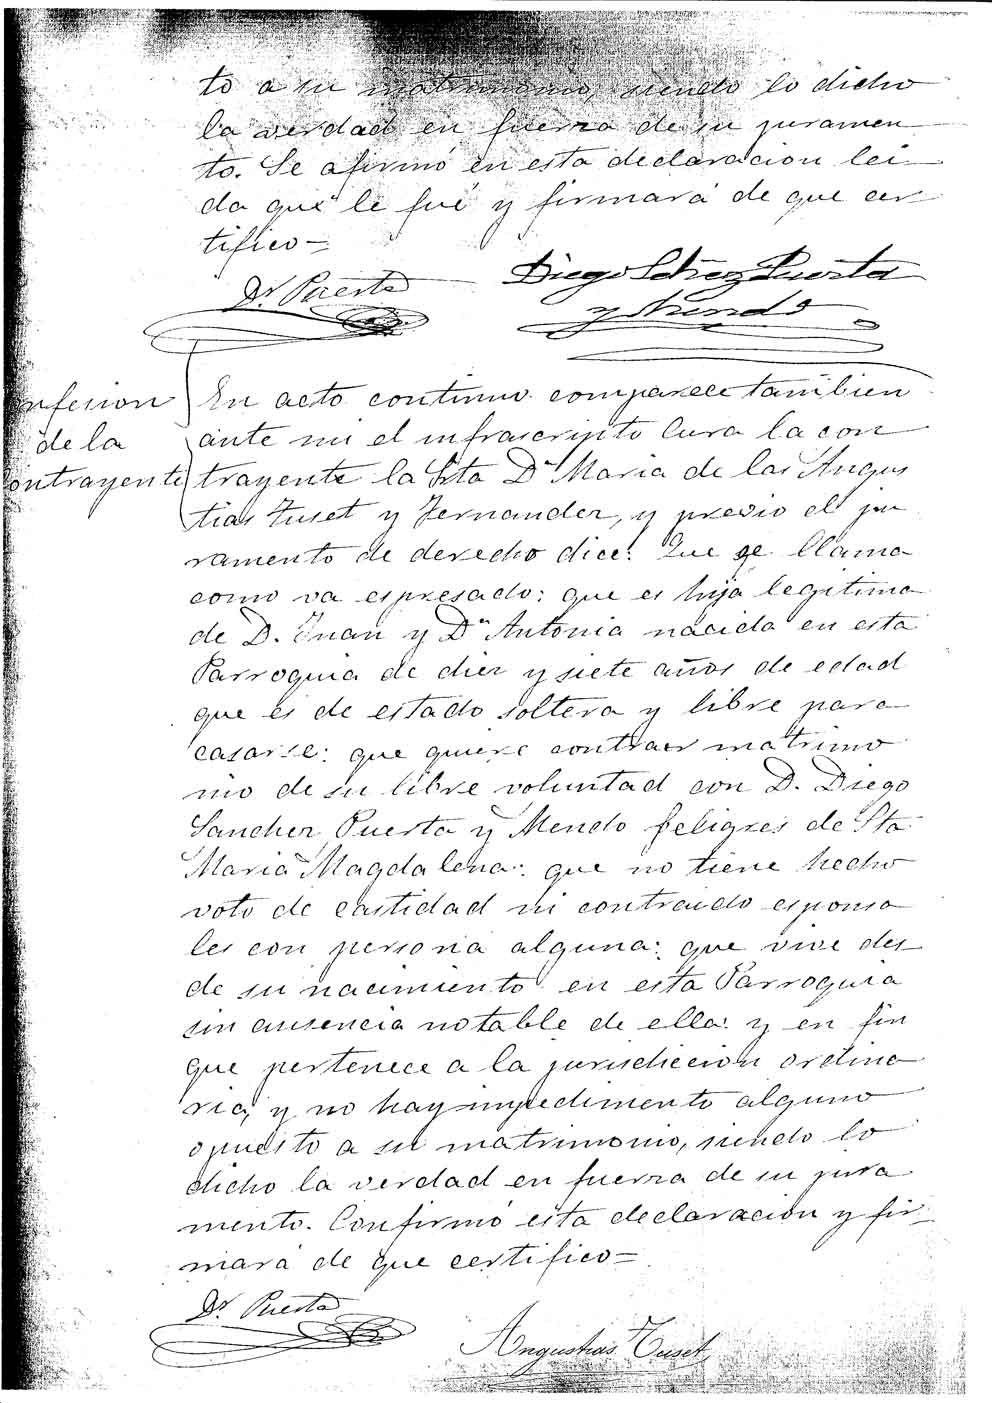 to a su matrimonio, siendo lo dicho
la verdad en fuerza de su juramen
to. Se afirmó en esta declaracion lei-
da que le fué y firmará de que cer-
tifico=
Dr. Puerta
Diego Schez Puerta
y Mendo
nfesion
de la
ontrayente
En acto continuo comparece tambien
ante mi el infrascripto Cura la con
trayente la Srta Dª Maria de las Angus
tias Tuset y Fernandez, y previo el ju
ramento de derecho dice: Que se llama
como va espresado: que es hija legitima
de D. Juan y Dª Antonia nacida en esta
Parroquia de diez y siete años de edad
que es de estado soltera y libre para
casarse: que quiere contraer matrimo
nio de su libre voluntad con D. Diego
Sanchez Puerta y Mendo feligres de Sta
Maria Magdalena: que no tiene hecho
voto de castidad ni contraido esponsa
les con persona alguna: que vive des
de su nacimiento en esta Parroquia
sin ausencia notable de ella: y en fin
que pertenece a la jurisdiccion ordina
ria, y no hay impedimento alguno
opuesto a su matrimonio, siendo lo
dicho la verdad en fuerza de su jura
mento. Confirmó esta declaracion y fir-
mará de que certifico=
Dr. Puerta
Angustias Tuset